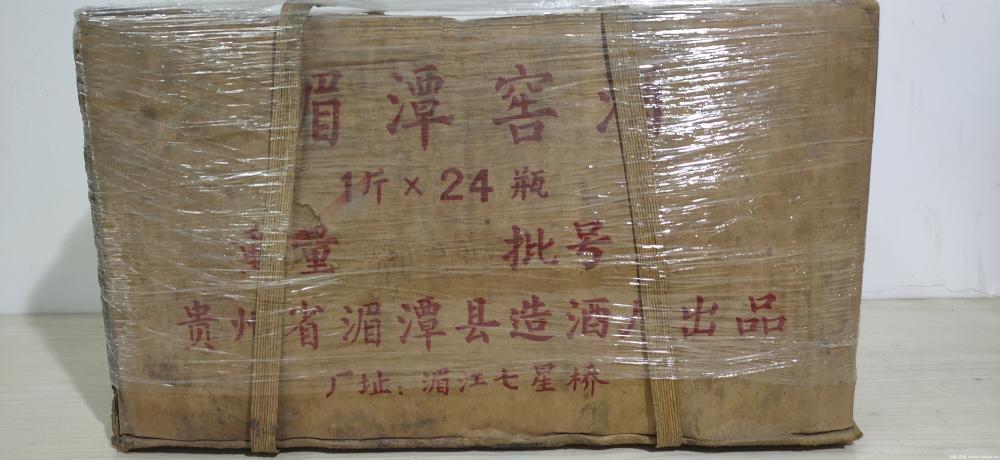 湄潭窖酒
1斤×24瓶
重量 批号
贵州省湄潭县造酒厂出品
厂址:湄江七星桥